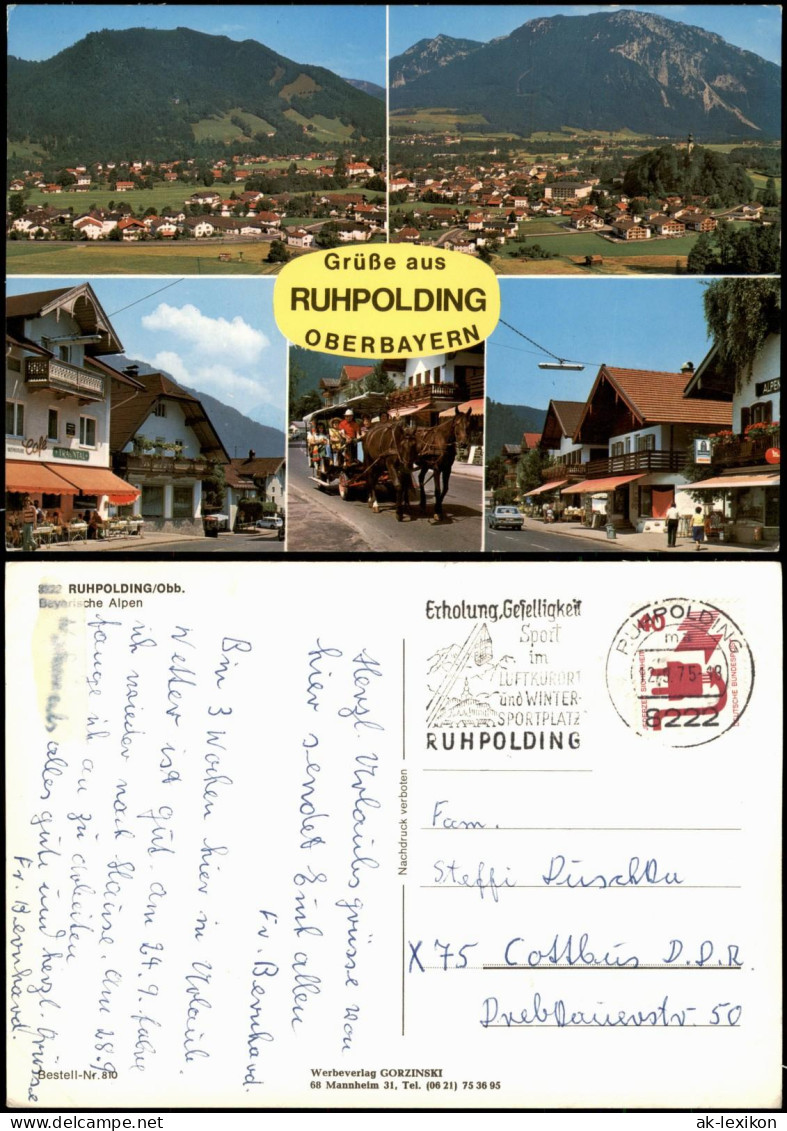 Grüße aus
RUHPOLDING
OBERBAYERN
Café
ALPEN
8222 RUHPOLDING/Obb.
Bayerische Alpen
Herzl. Urlaubsgrüsse von
hier sendet Euch allen
Fr. Bernhard.
Bin 3 Wochen hier in Urlaub.
Wetter ist gut. am 24.9. fahre
ich wieder nach Hause. Am 28.9
fange ich an zu arbeiten
alles gute und herzl. Grüsse
Fr. Bernhard.
Bestell-Nr. 810
Nachdruck verboten
Werbeverlag GORZINSKI
68 Mannheim 31, Tel. (06 21) 75 36 95
Erholung, Geselligkeit
Sport
im
LUFTKURORT
und WINTER-
SPORTPLATZ
RUHPOLDING
RUHPOLDING
8222
40
DEUTSCHE BUNDESPOST
Fam.
Steffi Duschka
X75 Cottbus D.D.R.
Drebkauerstr. 50
ak-lexikon
ak-lexikon.com